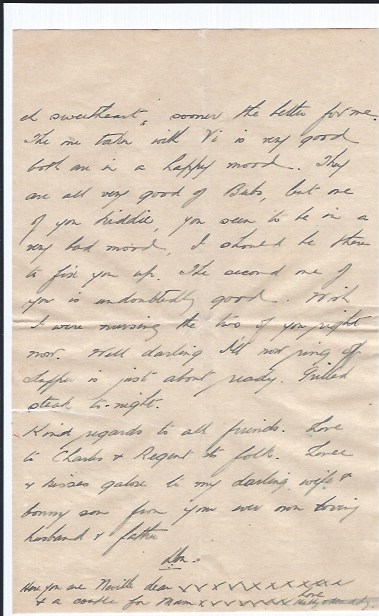 sweetheart, sooner the better for me.
The one taken with Vi is very good
both are in a happy mood. They
are all very good of Bubs, but one
of you kiddie, you seem to be in a
very bad mood, I should be there
to fix you up. The second one of
you is undoubtedly good. Wish
I were nursing the two of you right
now. Well darling I'll now ring off
supper is just about ready. Grilled
steak to-night.
Kind regards to all friends. Love
to Charles & Regent St folk. Love
& kisses galore to my darling wife &
bonny son from your ever own loving
husband & father
Don.
Here you are Neville dear x x x x x x x x x x x
& a couple for Mum x x x x x x x x x x Love